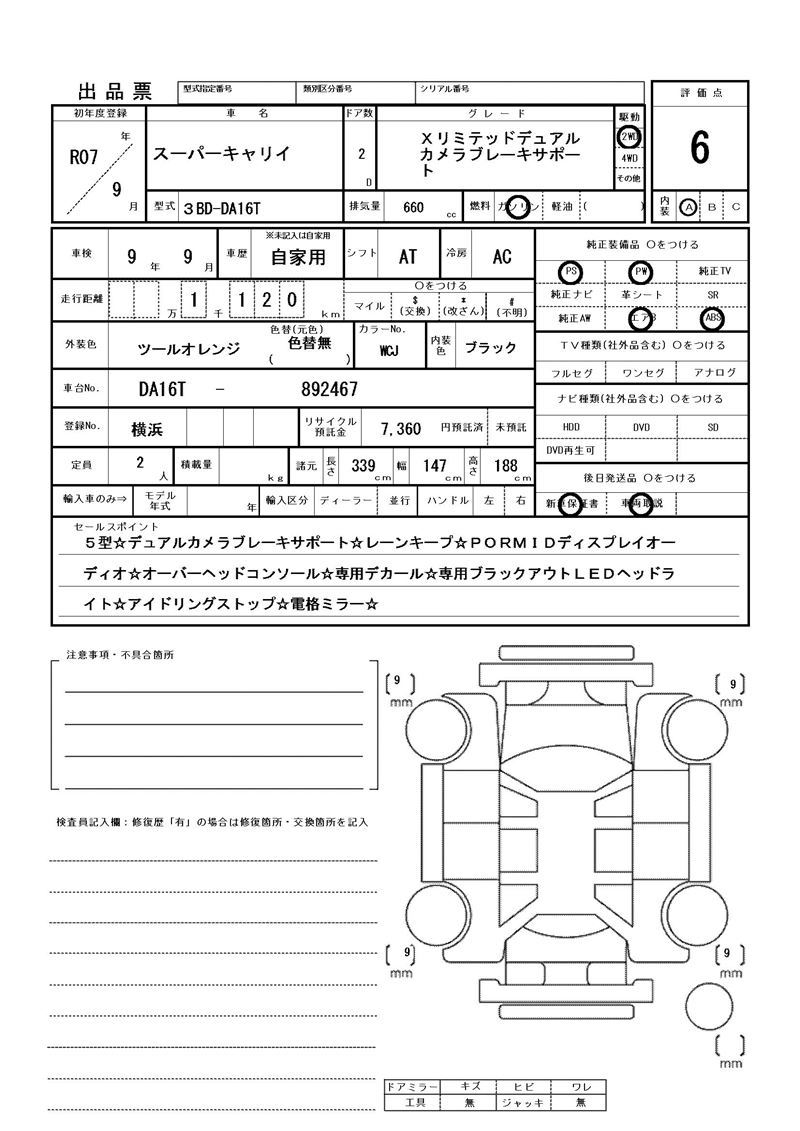 出品票 型式指定番号 類別区分番号 シリアル番号 評価点
初年度登録 車名 ドア数 グレード 駆動
R07 年 9 月 スーパーキャリイ 2 D
Xリミテッドデュアル
カメラブレーキサポー
ト
2WD
4WD
その他
6
型式 3BD-DA16T 排気量 660 cc 燃料 ガソリン 軽油 ( ) 内装 A B C
車検 9 年 9 月 車歴 ※未記入は自家用 自家用 シフト AT 冷房 AC
純正装備品 Oをつける
PS PW 純正TV
純正ナビ 革シート SR
純正AW エアB ABS
走行距離 1 万 千 1 2 0 km
Oをつける
マイル $(交換) *(改ざん) #(不明)
外装色 ツールオレンジ 色替(元色) 色替無 ( ) カラーNo. WCJ 内装色 ブラック
TV種類(社外品含む) Oをつける
フルセグ ワンセグ アナログ
車台No. DA16T - 892467
ナビ種類(社外品含む) Oをつける
HDD DVD SD
DVD再生可
登録No. 横浜 リサイクル預託金 7,360 円預託済 未預託
定員 2 人 積載量 kg 諸元 長さ 339 cm 幅 147 cm 高さ 188 cm
後日発送品 Oをつける
新車保証書 車両取説
輸入車のみ⇒ モデル年式 年 輸入区分 ディーラー 並行 ハンドル 左 右
セールスポイント
5型☆デュアルカメラブレーキサポート☆レーンキープ☆PORMIDディスプレイオー
ディオ☆オーバーヘッドコンソール☆専用デカール☆専用ブラックアウトLEDヘッドラ
イト☆アイドリングストップ☆電格ミラー☆
注意事項・不具合箇所
[9] mm
[9] mm
検査員記入欄:修復歴「有」の場合は修復箇所・交換箇所を記入
[9] mm
[9] mm
[ ] mm
ドアミラー キズ ヒビ ワレ
工具 無 ジャッキ 無